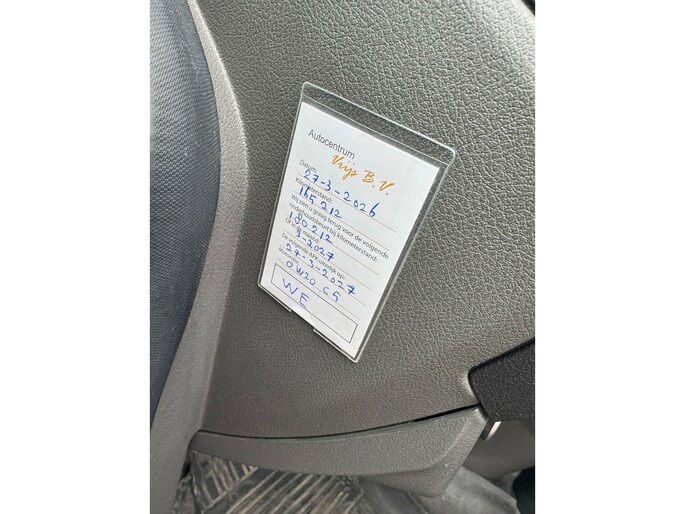 Autocentrum
Vrijs B.V.
Datum:
27-3-2026
Kilometerstand:
165.212
Wij zien u graag terug voor de volgende
onderhoudsbeurt bij kilometerstand:
180.212
Of in de maand:
3-2027
De volgende APK uiterlijk op:
27-3-2027
0W20 C5
WE